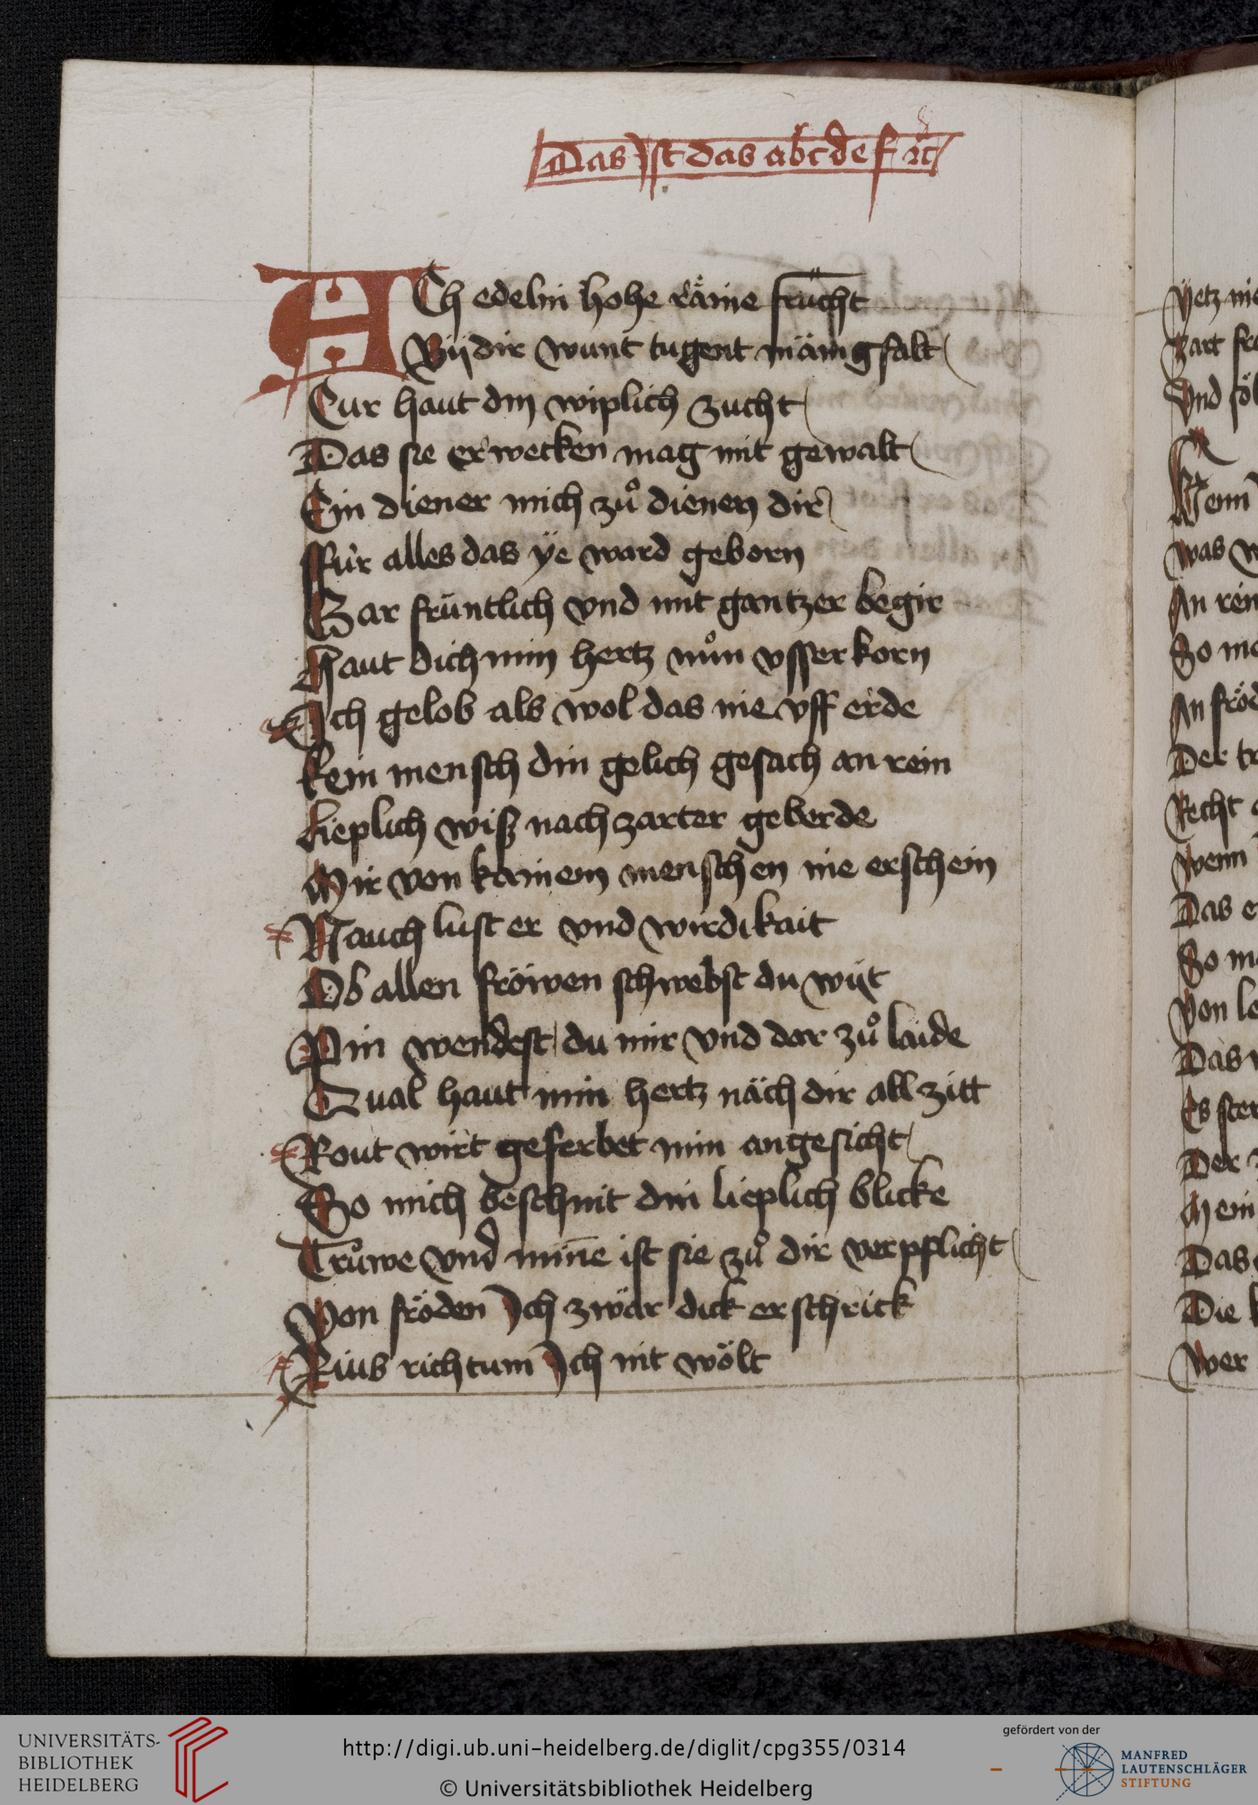 Das Jst das abcdef rc
ACh edelin hohe räine frücht
Bÿ dir wunt tugent mänigfalt
Cur haut din wiplich zucht
Das sie erwecken mag mit gewalt
Ein diener mich zuͦ dienen dir
ffür alles das ÿe ward geborn
Gar früntlich vnd mit gantzer begir
Haut dich min hertz nuͦn vsserkorn
Ich gelob als wol das nie vff erde
kein mensch din gelich gesach an rein
Lieplich wiß nach zarter geberde
Mir von kainem menschen nie erschein
Nauch luster vnd wirdikait
Ob allen fröwen schwebst du wÿt
Pin wendest du mir vnd dar zuͦ laide
Qual haut min hertz näch dir all zitt
Rout wirt geferbet min angesicht
So mich beschnit din lieplich blicke
Trüwe vnd mine ist sie zuͦ dir verpflicht
Von fröden Jch zwär dick erschrick
Rius richtum Jch nit wölt
ÿetz
zart
Vnd
was
An
So
An
Der
Recht
wenn
Das
So
von
Das
Es
Der
Mein
Das
Die
wer
UNIVERSITÄTS-
BIBLIOTHEK
HEIDELBERG
http://digi.ub.uni-heidelberg.de/diglit/cpg355/0314
© Universitätsbibliothek Heidelberg
gefördert von der
MANFRED
LAUTENSCHLÄGER
STIFTUNG